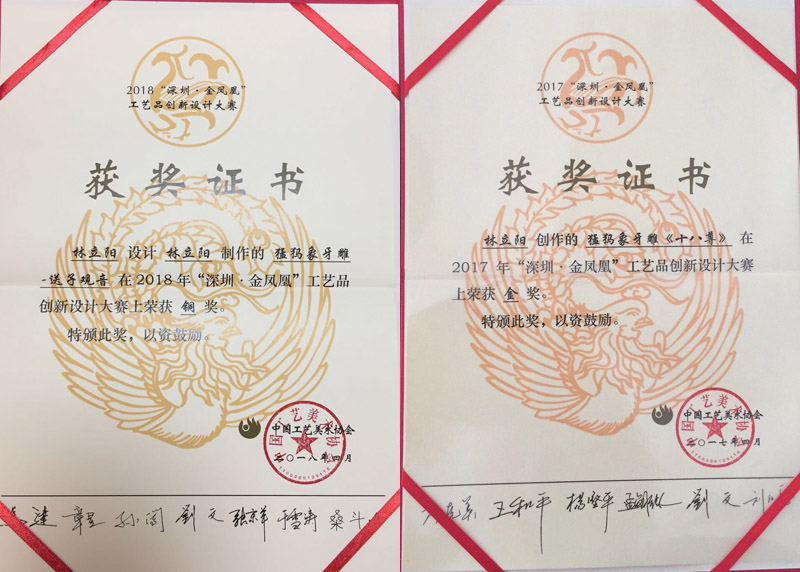 2018“深圳·金凤凰”
工艺品创新设计大赛
获奖证书
林立阳 设计 林立阳 制作的 猛犸象牙雕
-送子观音 在2018年“深圳·金凤凰”工艺品
创新设计大赛上荣获 铜 奖。
特颁此奖，以资鼓励。
中国工艺美术协会
二〇一八年四月
孙闯 刘文
2017“深圳·金凤凰”
工艺品创新设计大赛
获奖证书
林立阳 创作的 猛犸象牙雕《十八尊》 在
2017年“深圳·金凤凰”工艺品创新设计大赛
上荣获 金 奖。
特颁此奖，以资鼓励。
中国工艺美术协会
二〇一七年四月
王和平 杨坚平 刘文